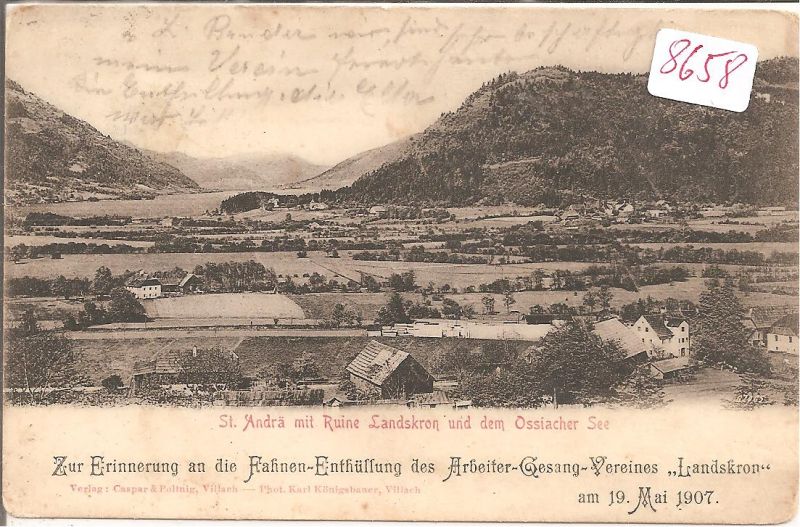 8658
L. Bruder wir sind sehr beschäftigt
mein Verein
die Enthüllung
St. Andrä mit Ruine Landskron und dem Ossiacher See
Zur Erinnerung an die Fahnen-Enthüllung des Arbeiter-Gesang-Vereines „Landskron“
Verlag: Caspar & Poltnig, Villach — Phot. Karl Königsbauer, Villach
am 19. Mai 1907.